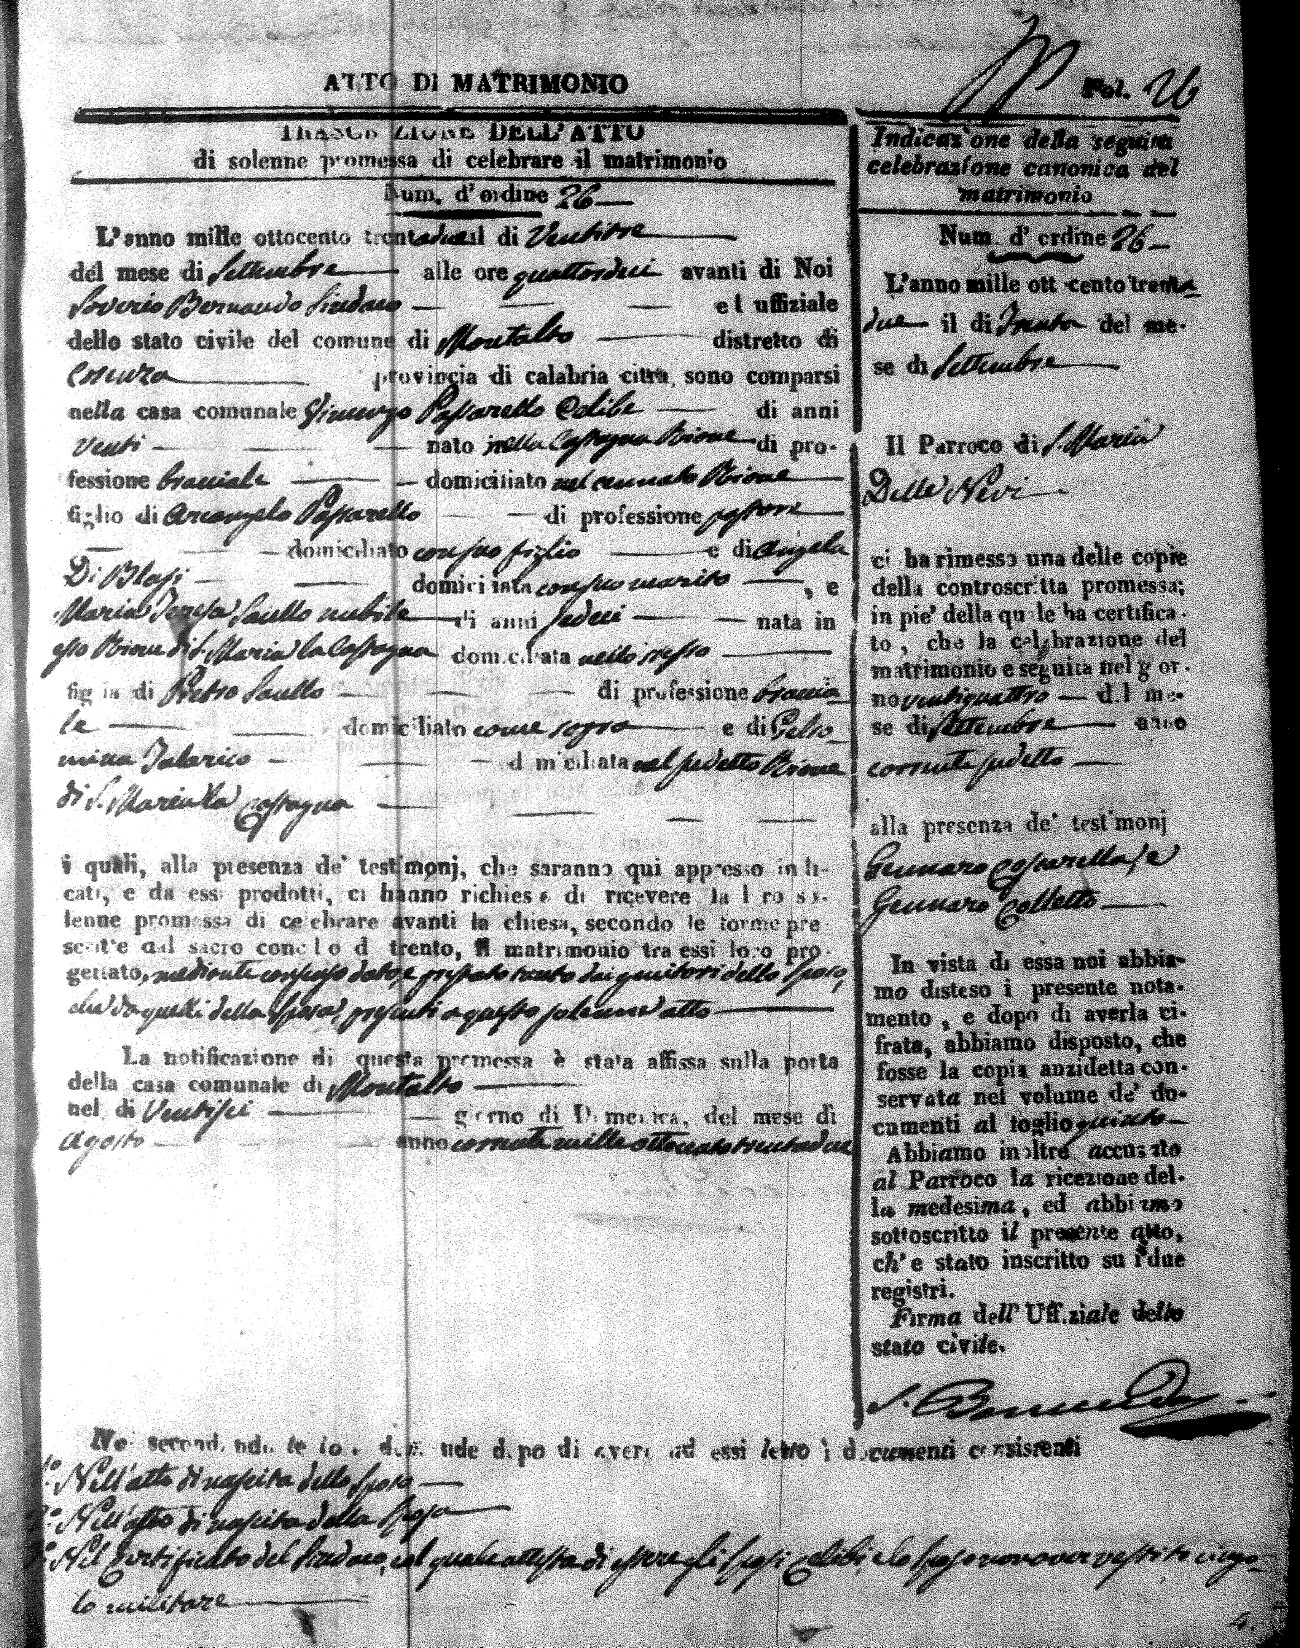 ATTO DI MATRIMONIO
Fol. 26
DELL'ATTO
di solenne promessa di celebrare il matrimonio
Num. d'ordine 26
L'anno mille ottocento trentadue il di Ventitre
del mese di Settembre alle ore quattordici avanti di Noi
Saverio Bernaudo Sindaco ed uffiziale
dello stato civile del comune di Montalto distretto di
Cosenza provincia di calabria citra, sono comparsi
nella casa comunale Passarello Celibe di anni
venti nato nella Castagna Rione di pro-
fessione bracciale domiciliato nel cennato Rione
figlio di Arcangelo Passarello di professione pastore
domiciliato con suo figlio e di Angela
Di Blasi domiciliata con suo marito , e
Maria Teresa Saullo nubile di anni sedeci nata in
Rione di S. Maria la Castagna domiciliata nello stesso
figlia di Pietro Saullo di professione braccia
le domiciliato come sopra e di Gelso
mina Talarico domiciliata nel sudetto Rione
di S. Maria la Castagna
i quali, alla presenza de' testimonj, che saranno qui appresso indi-
cati, e da essi prodotti, ci hanno richiesto di ricevere la loro so-
lenne promessa di celebrare avanti la chiesa, secondo le forme pre
scritte dal sacro concilio di trento, il matrimonio tra essi loro pro-
gettato, mediante consenso dato, e prestato tanto dai genitori dello sposo,
che da quelli della sposa, presenti a questo solenne atto
La notificazione di questa promessa è stata affissa sulla porta
della casa comunale di Montalto
nel di Ventisei giorno di Domenica, del mese di
agosto anno corrente mille ottocento trentadue
No secondando le dopo di avere ad essi letto i documenti consistenti
1o Nell'atto di nascita dello sposo
2o Nell'atto di nascita della sposa
3o Nel Certificato del Sindaco, col quale attesta di essere gli sposi celibi, e lo sposo non aver vestito cingo
lo militare
Indicazione della seguita
celebrazione canonica del
matrimonio
Num. d'ordine 26
L'anno mille ottocento trenta
due il di Trenta del me-
se di Settembre
Il Parroco di S. Maria
Delle Nevi
ci ha rimesso una delle copie
della controscritta promessa;
in pie' della quale ha certifica-
to, che la celebrazione del
matrimonio e seguita nel gior-
no ventiquattro del me-
se di Settembre anno
corrente sudetto
alla presenza de' testimonj
Gennaro Cossarella, e
Gennaro Colletto
In vista di essa noi abbia-
mo disteso il presente nota-
mento, e dopo di averla ci-
frata, abbiamo disposto, che
fosse la copia anzidetta con-
servata nel volume de' do-
cumenti al foglio quinto
Abbiamo inoltre accusato
al Parroco la ricezione del-
la medesima, ed abbiamo
sottoscritto il presente atto,
ch'e stato inscritto su i due
registri.
Firma dell' Uffiziale dello
stato civile.
S. Bernaudo